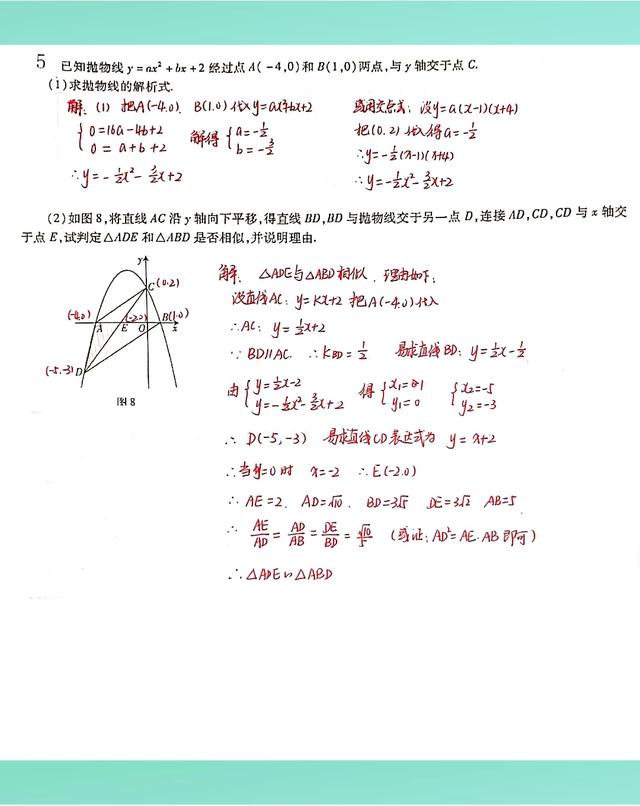 5 已知抛物线 y=ax²+bx+2 经过点 A(-4,0)和 B(1,0)两点,与 y 轴交于点 C.
(1)求抛物线的解析式.
解: (1) 把A(-4.0). B(1.0)代入y=ax²+bx+2
{0=16a-4b+2
0=a+b+2
解得{a=-1/2
b=-3/2
∴y=-1/2x²-3/2x+2
或用交点式: 设y=a(x-1)(x+4)
把(0.2)代入得a=-1/2
∴y=-1/2(x-1)(x+4)
∴y=-1/2x²-3/2x+2
(2)如图8,将直线 AC 沿 y 轴向下平移,得直线 BD,BD 与抛物线交于另一点 D,连接 AD,CD,CD 与 x 轴交
于点 E,试判定△ADE 和△ABD 是否相似,并说明理由.
y
C(0.2)
(-4.0) (-2.0) B(1.0)
A E O x
(-5,-3)D
图8
解. △ADE与△ABD相似. 理由如下:
设直线AC: y=kx+2 把A(-4.0)代入
∴AC: y=1/2x+2
∵BD∥AC. ∴K_BD=1/2 易求直线BD: y=1/2x-1/2
由{y=1/2x-2
y=-1/2x²-3/2x+2
得{x₁=1
y₁=0
{x₂=-5
y₂=-3
∴D(-5,-3) 易求直线CD表达式为 y=x+2
∴当y=0时 x=-2 ∴E(-2.0)
∴AE=2. AD=√10. BD=3√5 DE=3√2 AB=5
∴AE/AD=AD/AB=DE/BD=√10/5 (或证: AD²=AE·AB即可)
∴△ADE∽△ABD